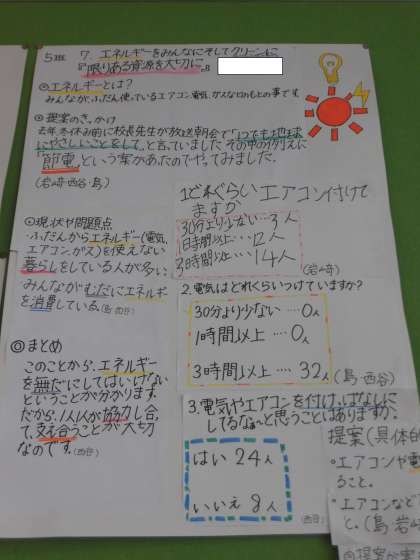 5班 7.エネルギーをみんなにそしてクリーンに
『限りある資源を大切に。』
◎エネルギーとは?
みんながふだん使っているエアコン、電気、ガスなどのもとの事です。
◎提案のきっかけ
去年、冬休み前に校長先生が放送朝会で「いつでも地球
にやさしいことをして」と言っていました。その中の例えに
「節電」という言葉があったのでやってみました。
(岩崎・西谷・島)
◎現状や問題点
ふだんからエネルギー(電気、
エアコン、ガス)を使えない
暮らしをしている人が多い
みんながむだにエネルギ
を消費している(島・西谷)
◎まとめ
このことから、エネルギー
を無だにしてはいけない
ということが分かります。
だから、1人1人が協力し合
て、支え合うことが大切
なのです。(西谷)
1.どれぐらいエアコン付けて
ますか
30分より少ない…3人
1時間以上…12人
3時間以上…14人
(岩崎)
2.電気はどれくらいつけていますか?
30分より少ない…0人
1時間以上…0人
3時間以上…32人
(島・西谷)
3.電気やエアコンを付けっぱなしに
してるな〜と思うことはありますか。
はい 24人
いいえ 8人
(西谷)
提案(具体的
・エアコンや電
ること。
・エアコンなど
と。(島 岩崎